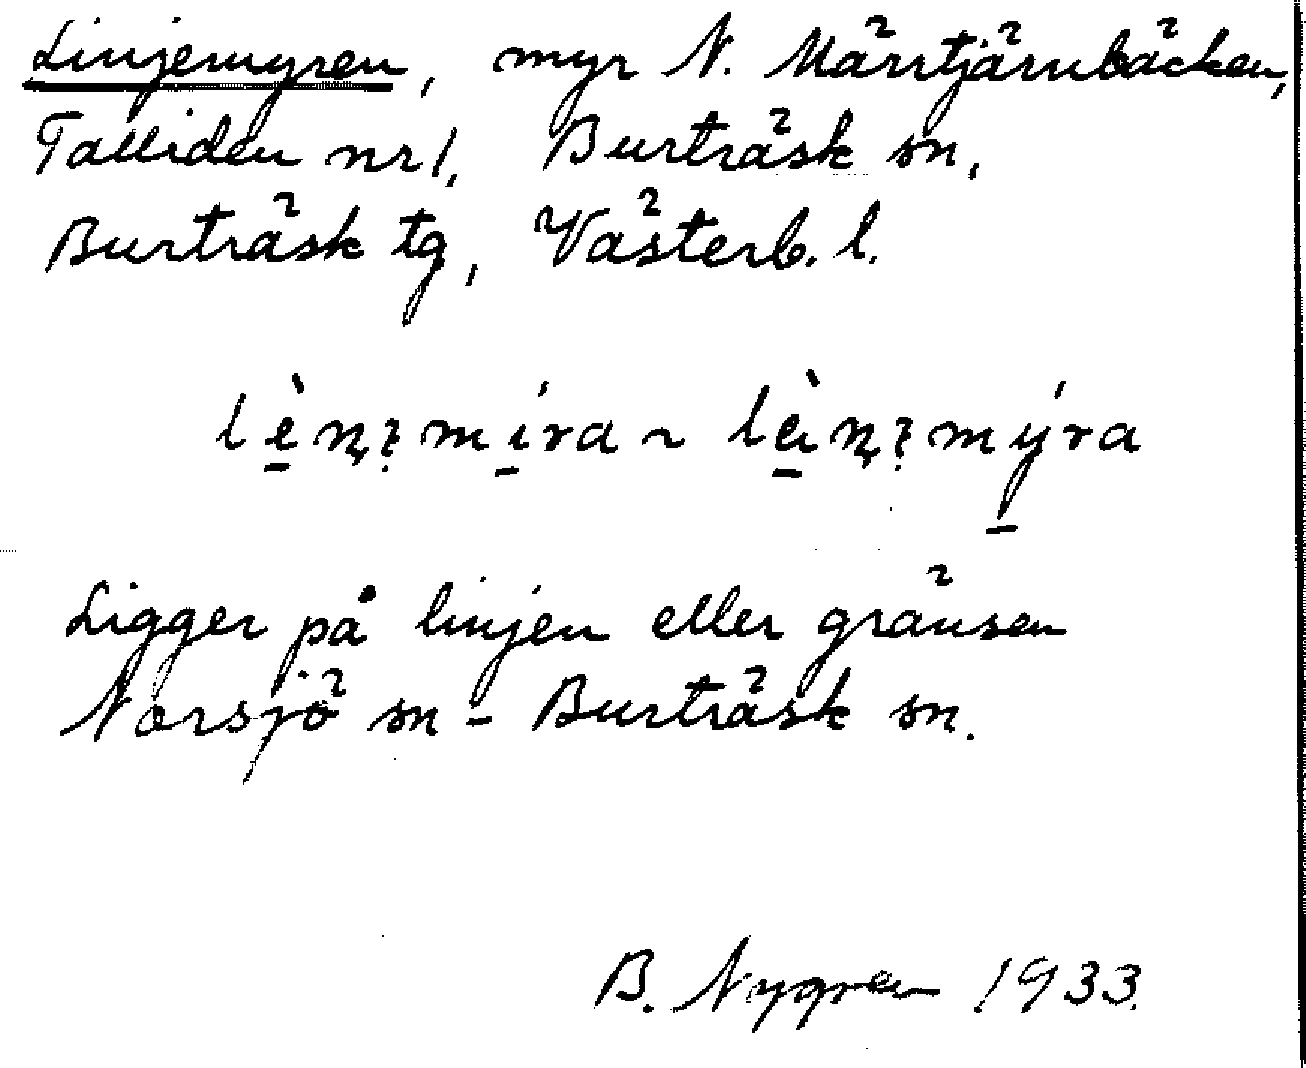 Linjemyren, myr N. Märrtjärnbäcken,
Talliden nr 1, Burträsk sn,
Burträsk tg, Västerb. l.
Ligger på linjen eller gränsen
Norsjö sn - Burträsk sn.
B. Nygren 1933.